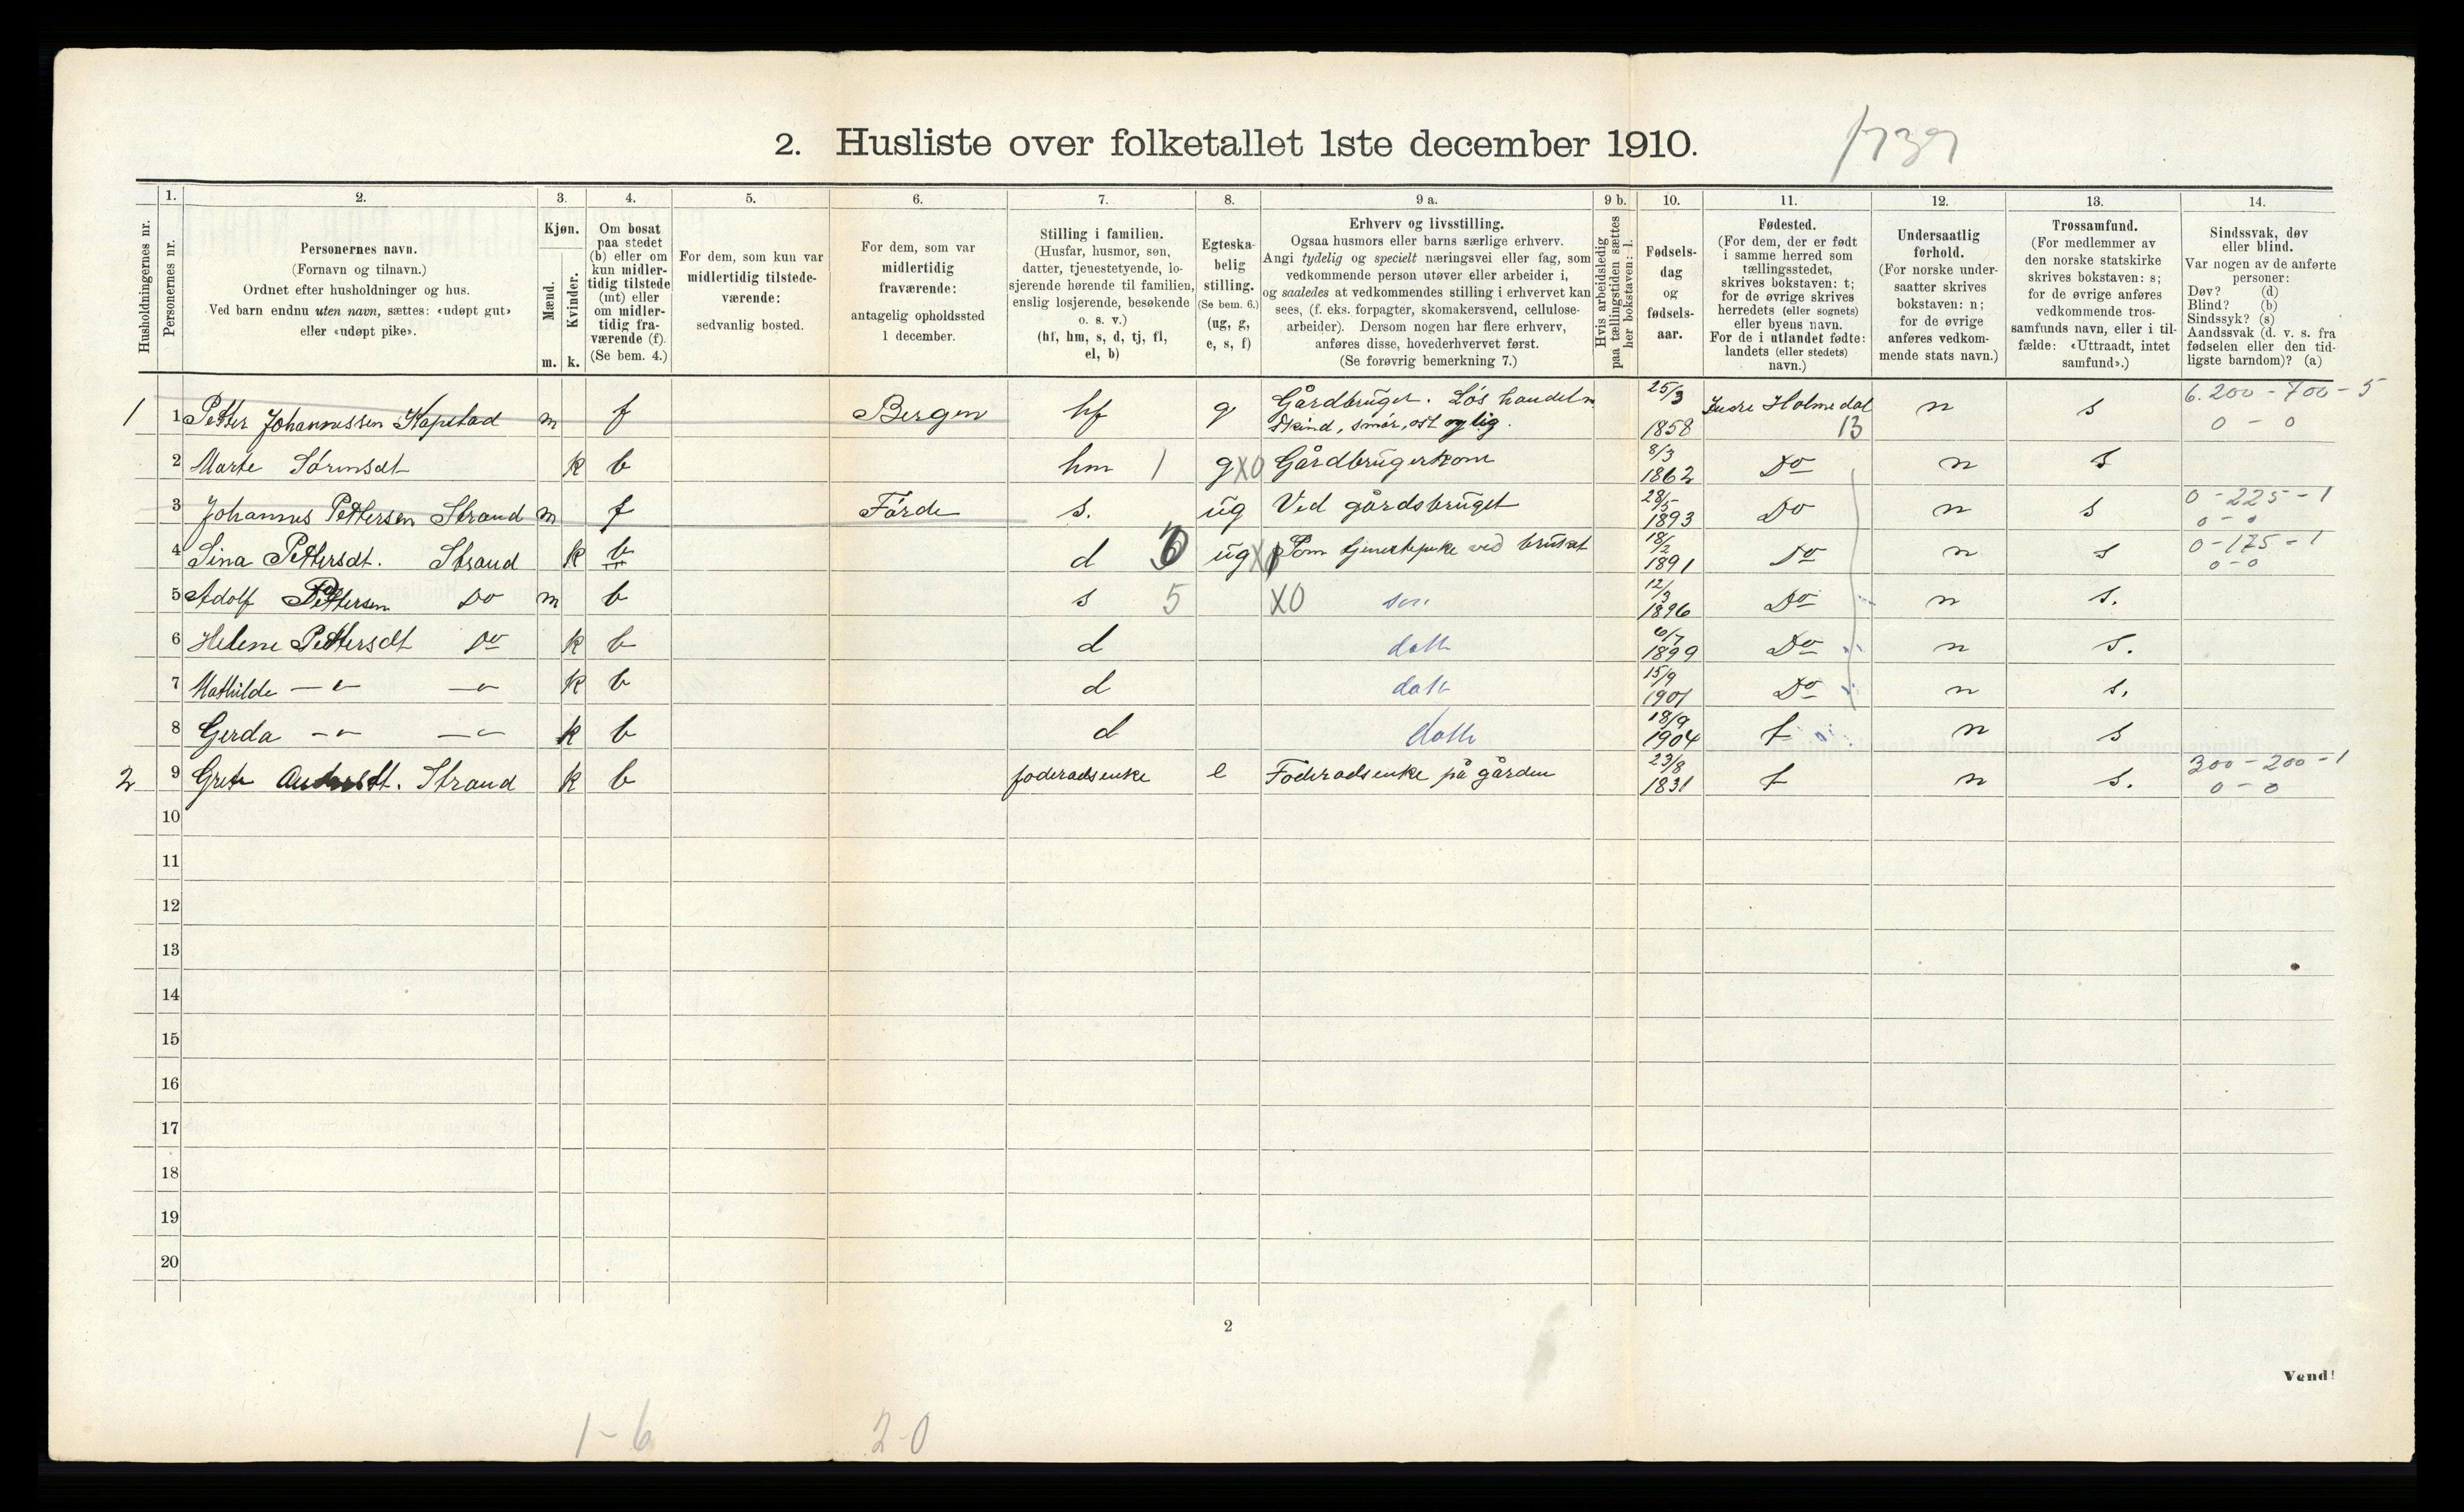 2. Husliste over folketallet 1ste december 1910.
1. 2. 3. 4. 5. 6. 7. 8. 9 a. 9 b. 10. 11. 12. 13. 14.
Husholdningernes nr.
Personernes nr.
Personernes navn.
(Fornavn og tilnavn.)
Ordnet efter husholdninger og hus.
Ved barn endnu uten navn, sættes: «udøpt gut»
eller «udøpt pike».
Kjøn.
Mænd.
Kvinder.
m. k.
Om bosat
paa stedet
(b) eller om
kun midler-
tidig tilstede
(mt) eller
om midler-
tidig fra-
værende (f).
(Se bem. 4.)
For dem, som kun var
midlertidig tilstede-
værende:
sedvanlig bosted.
For dem, som var
midlertidig
fraværende:
antagelig opholdssted
1 december.
Stilling i familien.
(Husfar, husmor, søn,
datter, tjenestetyende, lo-
sjerende hørende til familien,
enslig losjerende, besøkende
o. s. v.)
(hf, hm, s, d, tj, fl,
el, b)
Egteska-
belig
stilling.
(Se bem. 6.)
(ug, g,
e, s, f)
Erhverv og livsstilling.
Ogsaa husmors eller barns særlige erhverv.
Angi tydelig og specielt næringsvei eller fag, som
vedkommende person utøver eller arbeider i,
og saaledes at vedkommendes stilling i erhvervet kan
sees, (f. eks. forpagter, skomakersvend, cellulose-
arbeider). Dersom nogen har flere erhverv,
anføres disse, hovederhvervet først.
(Se forøvrig bemerkning 7.)
Hvis arbeidsledig
paa tællingstiden sættes
her bokstaven: l.
Fødsels-
dag
og
fødsels-
aar.
Fødested.
(For dem, der er født
i samme herred som
tællingsstedet,
skrives bokstaven: t;
for de øvrige skrives
herredets (eller sognets)
eller byens navn.
For de i utlandet fødte:
landets (eller stedets)
navn.)
Undersaatlig
forhold.
(For norske under-
saatter skrives
bokstaven: n;
for de øvrige
anføres vedkom-
mende stats navn.)
Trossamfund.
(For medlemmer av
den norske statskirke
skrives bokstaven: s;
for de øvrige anføres
vedkommende tros-
samfunds navn, eller i til-
fælde: «Uttraadt, intet
samfund».)
Sindssvak, døv
eller blind.
Var nogen av de anførte
personer:
Døv? (d)
Blind? (b)
Sindssyk? (s)
Aandssvak (d. v. s. fra
fødselen eller den tid-
ligste barndom)? (a)
1 1 Petter Johannessen Kapstad m f Bergen hf g Gårdbruger. Løs handel m skind, smør, ost og lig. 25/3 1858 Indre Holmedal 13 n s 6.200-700-5 0-0
2 Marte Sørensdt k b hm 1 g X0 Gårdbrugerkone 8/3 1862 Do n s
3 Johannes Pettersen Strand m f Førde s. ug Ved gårdsbruget 28/5 1893 Do n s 0-225-1 0-0
4 Sina Pettersdt. Strand k b d ug Som tjenestepike ved bruket 18/2 1891 Do n s 0-175-1 0-0
5 Adolf Pettersen Do m b s 5 X0 søn 12/3 1896 Do n s.
6 Helene Pettersdt Do k b d datt 6/7 1899 Do n s.
7 Mathilde — " — — " — k b d datt 15/9 1901 Do n s.
8 Gerda — " — — " — k b d datt 18/9 1904 t n s
2 9 Grete Andersdt. Strand k b foderadsenke e Foderadsenke på gården 23/8 1831 t n s. 300-200-1 0-0
10
11
12
13
14
15
16
17
18
19
20
2
Vend!
1-6 2-0